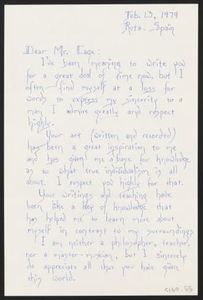 Feb. 13, 1979
Rota, Spain
Dear Mr. Cage:
I've been meaning to write you
for a great deal of time now, but I
often find myself at a loss for
words to express my sincerity to a
man I admire greatly and respect
highly.
Your art (written and recorded)
has been a great inspiration to me
and has given me a base for knowledge
as to what true individualism is all
about. I respect you highly for that.
Your writings and teaching have
been like a key of knowledge that
has helped me to learn more about
myself in contrast to my surroundings.
I am neither a philosopher, teacher,
nor a master-musician, but I sincerely
do appreciate all that you have given
this world.